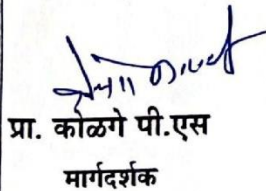 प्रा. कोळगे पी.एस
मार्गदर्शक